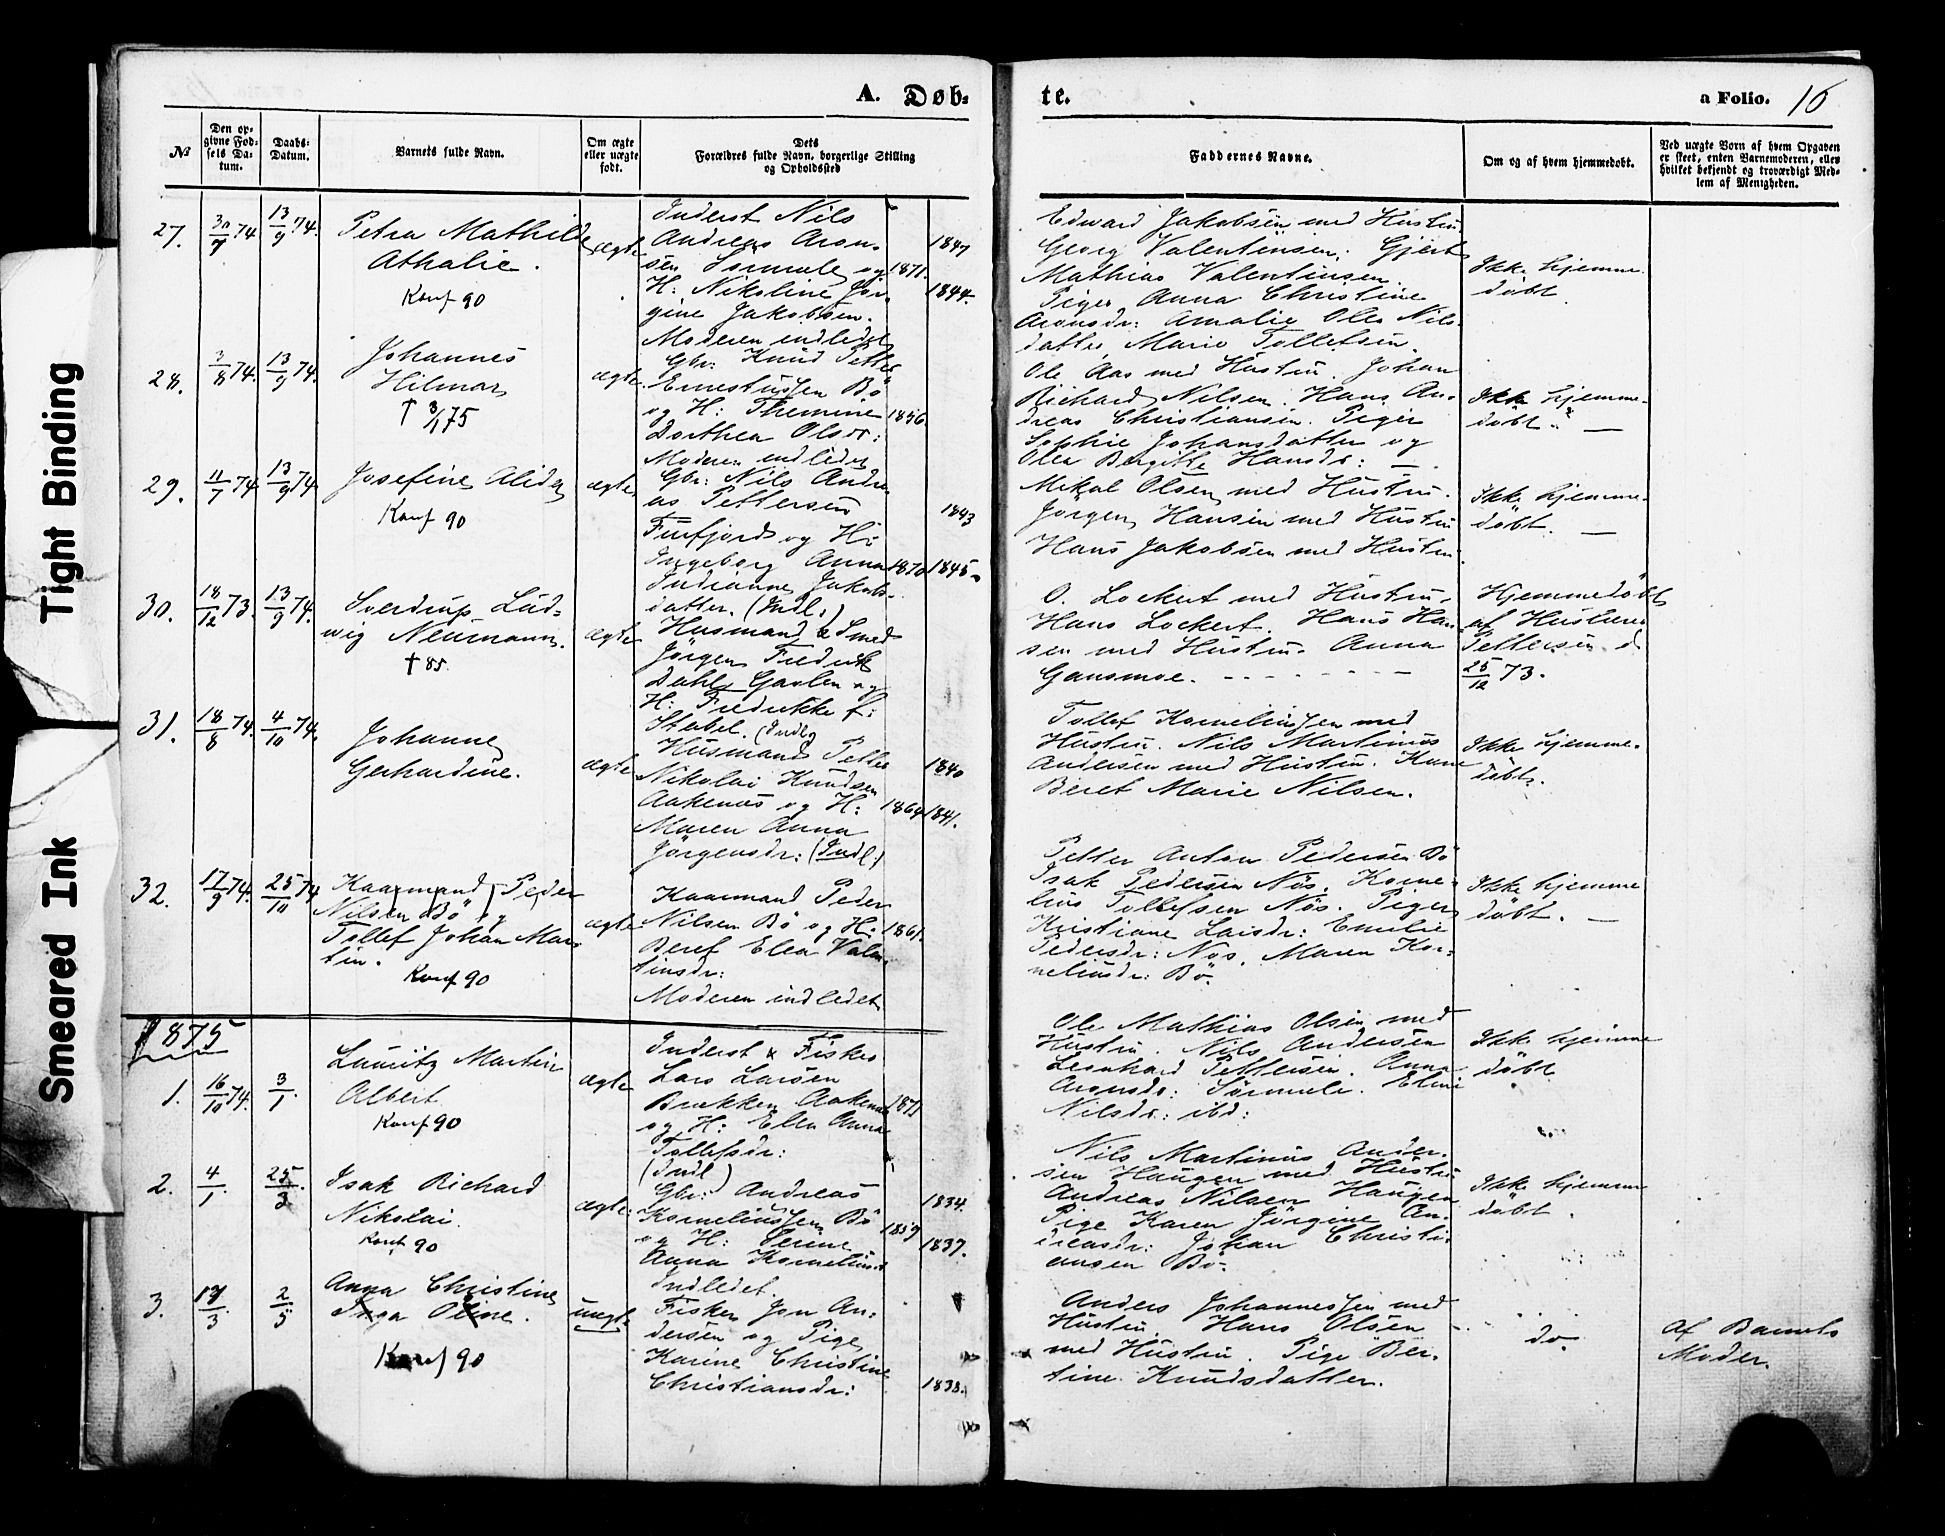 Tight Binding
Smeared Ink
A. Døb-
te.
a Folio. 16
№
Den op-
givne Fød-
sels Da-
tum.
Daabs-
Datum.
Barnets fulde Navn.
Om ægte
eller uægte
født.
Dets
Forældres fulde Navn, borgerlige Stilling
og Opholdssted
Faddernes Navne.
Om og af hvem hjemmedøbt.
Ved uægte Børn af hvem Opgaven
er skeet, enten Barnemoderen, eller
hvilket bekjendt og troværdigt Med-
lem af Menigheden.
27.
30/7 74
13/9 74.
Petra Mathilde
Athalie.
Konf 90
ægte
Inderst Nils
Andreas Aron-
sen Sørmule og
H: Nikoline Jør-
gine Jakobsen.
Moderen indledet
1871.
1847
1844.
Edward Jakobsen med Hustru
Georg Valentinsen. Gjert
Mathias Valentinsen.
Piger Anna Christine
Aronsdr: Amalie Olea Nils-
datter Marie Tollefsen.
Ikke hjemme-
døbt.
28.
3/8 74.
13/9 74.
Johannes
Hilmar
† 3/1 75
ægte.
Gbr: Knud Petter
Ernestussen Bö
og H: Themine
Dorthea Olsdr:
Moderen indledet
1856.
Ole Aas med Hustru. Johan
Richard Nilsen. Hans An-
dreas Christiansen. Piger
Sophie Johansdatter og
Olea Bergitte Hansdr: —
Ikke hjemme-
døbt. —
29.
11/7 74
13/9 74
Josefine Alida
Konf 90
ægte
Gbr: Nils Andre-
as Pettersen
Furfjord og H:
Ingeborg Anna
Indianna Jakobs-
datter. (Indl.)
1870
1843
1845
Mekal Olsen med Hustru.
Jørgen Hansen med Hustru
Hans Jakobsen med Hustru
Ikke hjemme-
døbt. —
30.
18/12 73.
13/9 74.
Sverdrup Lud-
wig Neumann.
† 85
ægte
Husmand & Smed
Jørgen Fredrik
Dahl Gavlen og
H: Fredrikke f:
Stabel. (Indl)
O. Lockert med Hustru.
Hans Lockert. Hans Han-
sen med Hustru. Anna
Gansmoe. - - - - - - -
Hjemmedøbt
af Huslærer
Pettersen d
25/12 73.
31.
18/8 74.
4/10 74.
Johanne
Gerhardine.
ægte
Husmand Petter
Nikolai Knudsen
Aakenæs og H:
Maren Anna
Jørgensdr: (Indl.)
1864
1840
1841.
Tollef Korneliussen med
Hustru. Nils Martinus
Andersen med Hustru. Kone
Beret Marie Nilsen.
Ikke hjemme-
døbt.
32.
17/9 74.
25/10 74
Kaarmand Peder
Nilsen Bö og
Tollef Johan Mar-
tin.
Konf 90
ægte
Kaarmand Peder
Nilsen Bö og H:
Beret Elea Valen-
tinsdr:
Moderen indledet
1861.
Petter Anton Pedersen Bö
Isak Pedersen Nös. Korne-
lius Tollefsen Nös. Piger
Kristiane Larsdr: Emilie
Pedersdr: Nös. Maren Kor-
neliusdr: Bö.
Ikke hjemme
døbt. —
1875
1.
16/10 74.
3/1
Lauritz Martin
Albert
Konf 90
ægte
Inderst & Fisker
Lars Larsen
Brækken Aakenæs
og H: Ella Anna
Tollefsdr:
(Indl)
1871
Ole Mathias Olsen med
Hustru. Nils Andersen
Leonhard Pettersen. Anna
Aronsdr: Sörmule. Eline
Nilsdr: ibd:
Ikke hjemme
døbt
2.
4/1.
25/3.
Isak Richard
Nikolai.
Konf 90
ægte.
Gbr: Andreas
Korneliussen Bö
og H: Serine
Anna Korneliusdr
Indledet.
1859
1834.
1837.
Nils Martinus Ander-
sen Haugen med Hustru
Andreas Nilsen Haugen
Pige Karen Jørgine An-
dreasdr: Johan Christi-
ansen Bö.
Ikke hjemme
døbt.
3.
17/3.
2/5
Anna Christine
Inga Oline.
Konf 90
uægte
Fisker Jon An-
dersen og Pige
Karine Christine
Christiansdr:
1838.
Anders Johannessen med
Hustru. Hans Olsen
med Hustru. Pige Ber-
tine Knudsdatter.
do
Af Barnets
Moder.